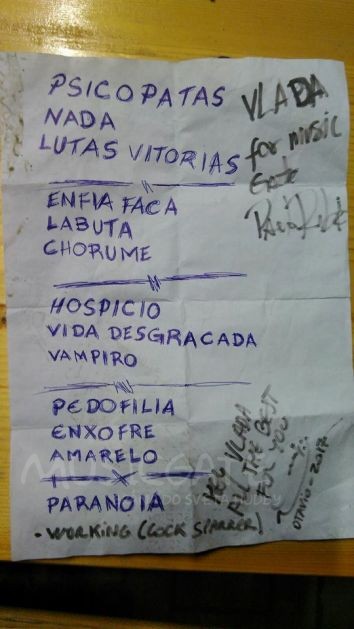 PSICOPATAS
NADA
LUTAS VITORIAS
ENFIA FACA
LABUTA
CHORUME
HOSPICIO
VIDA DESGRACADA
VAMPIRO
PEDOFILIA
ENXOFRE
AMARELO
PARANOIA
- WORKING (COCK SPARRER)
VLADA
for music
HEY VLADA
ALL THE BEST
FOR YOU
OTAVIO - 2017